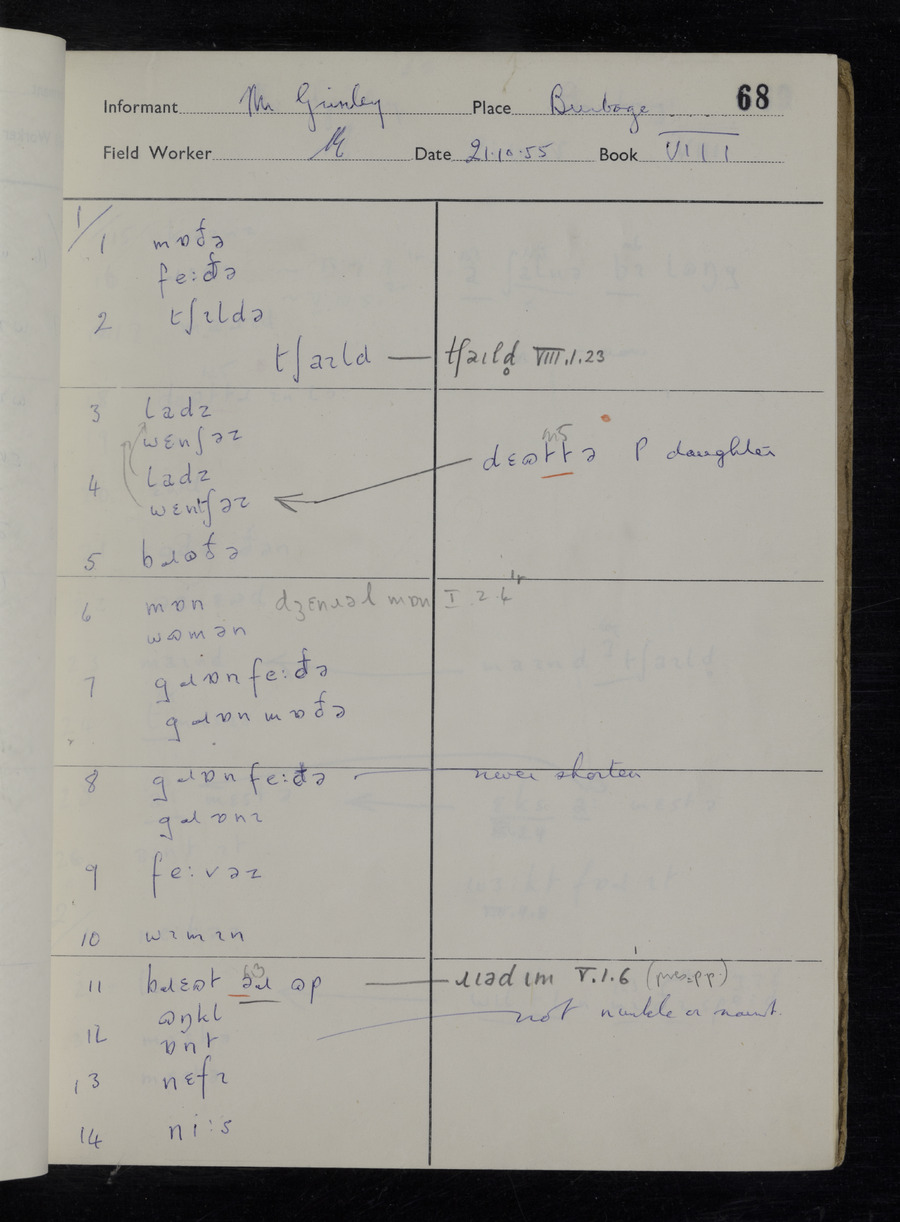 68
Informant Mr Grimley Place Burbage
Field Worker Date 21.10.55 Book VIII
1/
1 mɒðə
fe:ðə
2 tʃɪldə
tʃaɪld — tʃaɪld̥ VIII.1.23
3 ladz
wɛnʃəz
4 ladz
wɛntʃəz
dɛʊttə P daughter
5 bɹʊðə
6 mɒn dʒɛnɹəl mɒn I 2.4
wʊmən
7 gɹɒnfe:ðə
gɹɒnmɒðə
8 gɹɒnfe:ðə never shorten
gɹɒnɪ
9 fe:vəz
10 wɪmɪn
11 bɹɛʊt əɹ ʊp — ɹɪəd ɪm V.1.6 (pres.pp.)
12 ʊŋkl not nunkle or naunt
ɒnt
13 nɛfɪ
14 ni:s